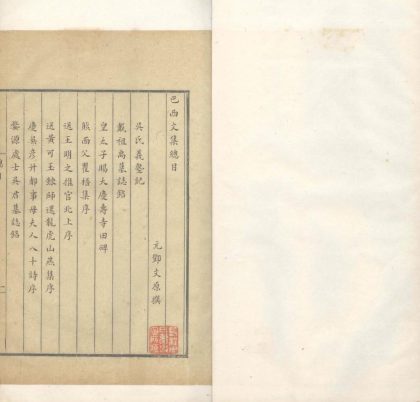 巴西文集總目
元鄧文原撰
吳氏義塾記
戴祖禹墓誌銘
皇太子賜大慶壽寺田碑
熊西父瞿梧集序
送王明之推官北上序
送黃可玉鍊師還龍虎山燕集序
慶吳彥升都事母夫人八十詩序
婺源處士吳君墓誌銘